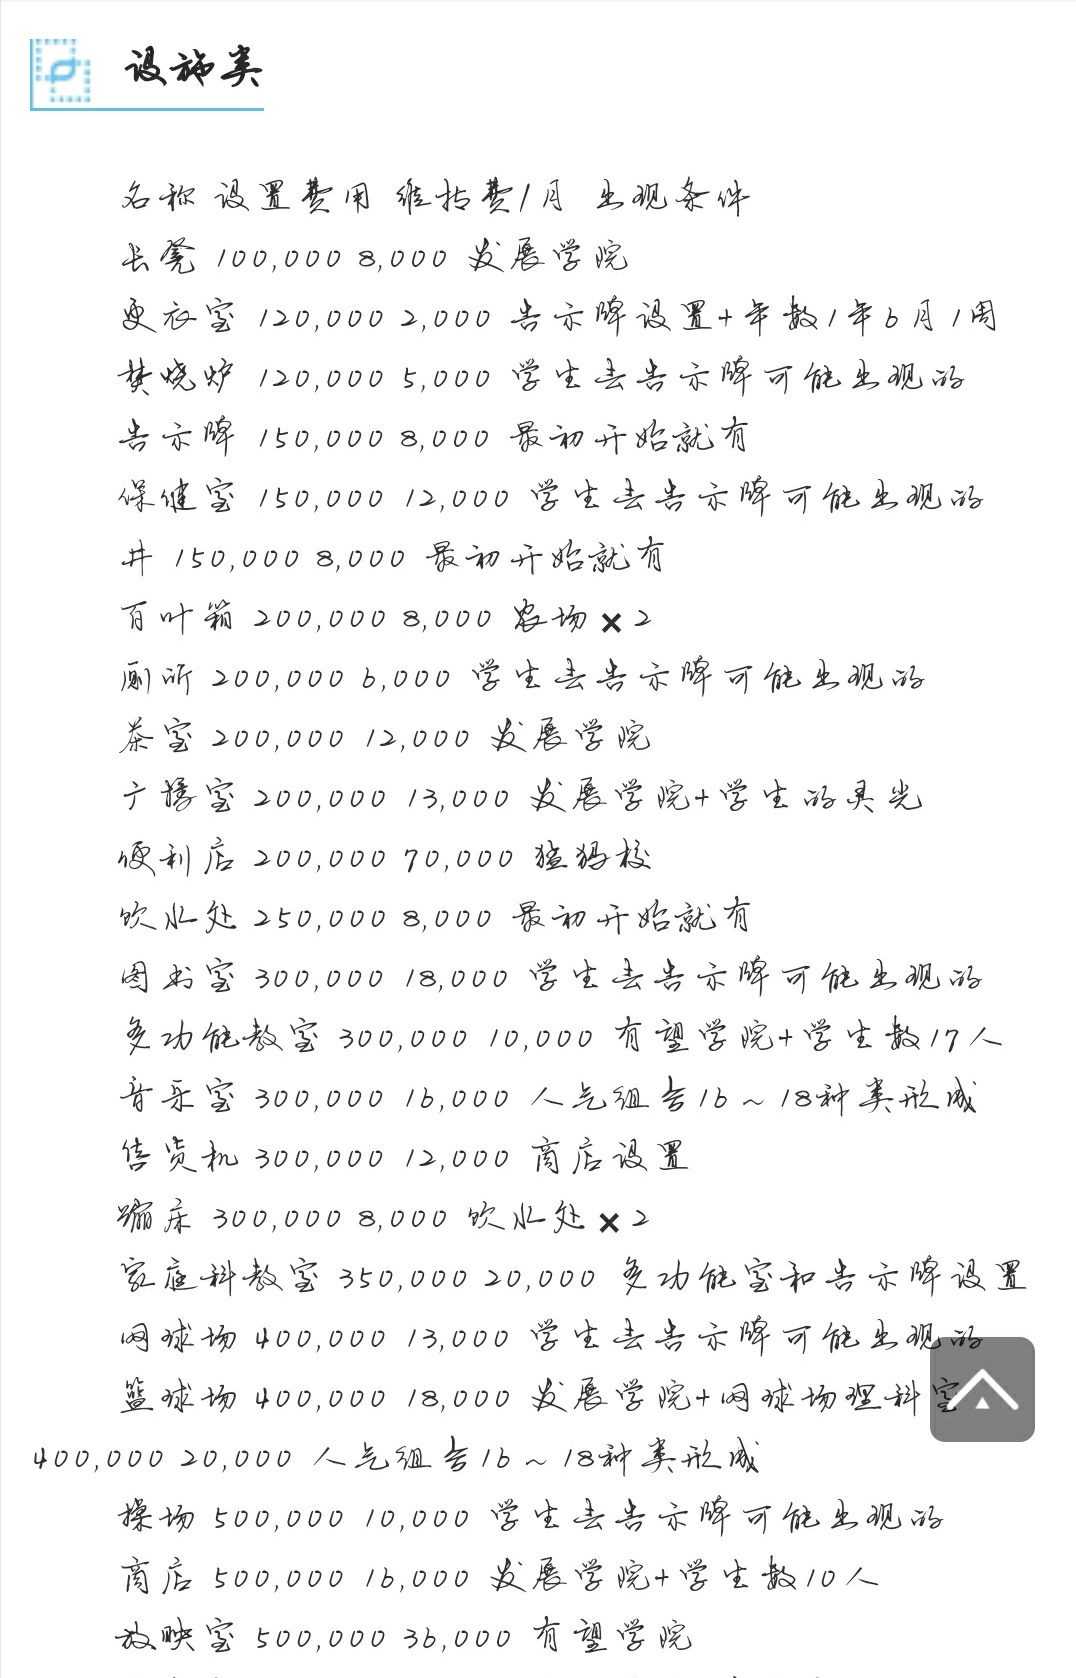 设施类
名称 设置费用 维持费/月 出现条件
长凳 100,000 8,000 发展学院
更衣室 120,000 2,000 告示牌设置+年数1年6月1周
焚烧炉 120,000 5,000 学生去告示牌可能出现的
告示牌 150,000 8,000 最初开始就有
保健室 150,000 12,000 学生去告示牌可能出现的
井 150,000 8,000 最初开始就有
百叶箱 200,000 8,000 农场×2
厕所 200,000 6,000 学生去告示牌可能出现的
茶室 200,000 12,000 发展学院
广播室 200,000 13,000 发展学院+学生的灵光
便利店 200,000 70,000 猛犸校
饮水处 250,000 8,000 最初开始就有
图书室 300,000 18,000 学生去告示牌可能出现的
多功能教室 300,000 10,000 有望学院+学生数17人
音乐室 300,000 16,000 人气组合16~18种类形成
售货机 300,000 12,000 商店设置
蹦床 300,000 8,000 饮水处×2
家庭科教室 350,000 20,000 多功能室和告示牌设置
网球场 400,000 13,000 学生去告示牌可能出现的
篮球场 400,000 18,000 发展学院+网球场理科室
400,000 20,000 人气组合16~18种类形成
操场 500,000 10,000 学生去告示牌可能出现的
商店 500,000 16,000 发展学院+学生数10人
放映室 500,000 36,000 有望学院